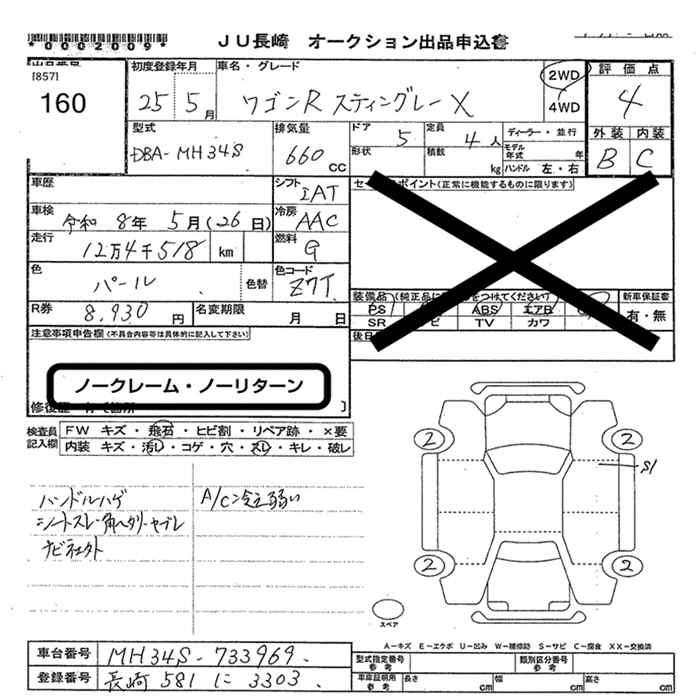 *0002009*
JU長崎 オークション出品申込書
[857]
160
初度登録年月
25 5月
車名・グレード
ワゴンR スティングレー X
2WD
4WD
評価点
4
外装 内装
B C
型式
DBA-MH34S
排気量
660 CC
ドア 5
定員 4人
形状
積数 kg
ディーラー・並行
モデル年式 年
ハンドル 左・右
車歴
シフト IAT
車検 令和 8年 5月(26日)
冷房 AAC
走行 12万4千518 km
燃料 G
色 パール
色替
色コード Z7T
R券 8,930円
名変期限 月 日
セールスポイント(正常に機能するものに限ります)
装備品
PS ABS エアB
SR ナビ TV カワ
新車保証書
有・無
注意事項申告欄(不具合内容等は具体的に記入して下さい)
ノークレーム・ノーリターン
検査員記入欄
FW キズ・飛石・ヒビ割・リペア跡・×要
内装 キズ・汚レ・コゲ・穴・スレ・キレ・破レ
ハンドルハゲ
A/C冷え弱い
2 2
S1
2 2
スペア
A−キズ E−エクボ U−凹み W−補修跡 S−サビ C−腐食 XX−交換済
車台番号 MH34S-733969
登録番号 長崎 581 に 3303
型式指定番号 参考
類別区分番号 参考
車庫証明用 参考
長さ cm 幅 cm 高さ cm